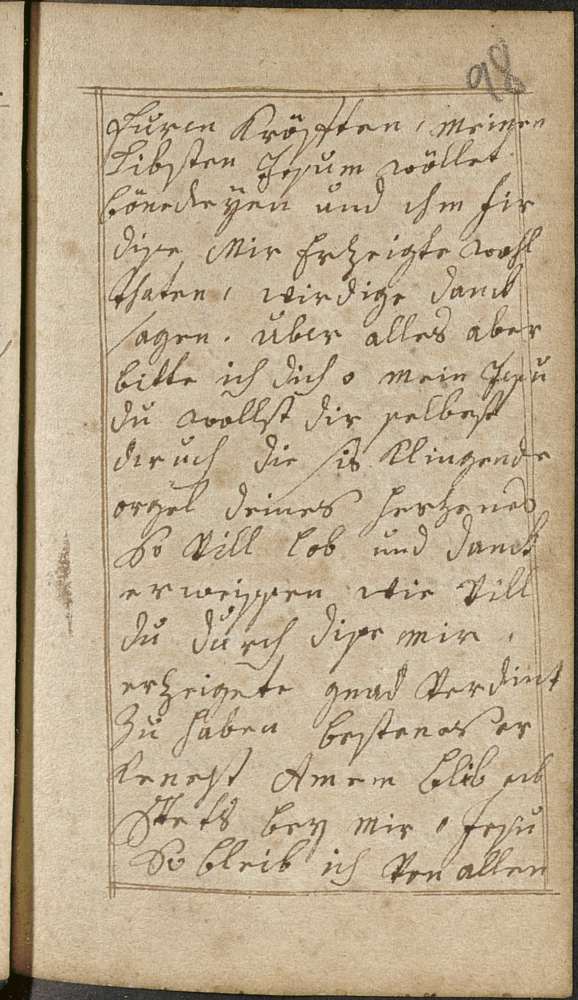 98
Euren Kröfften, meinen
Libsten Jesum wöllet
bönedeyen und ihm fir
dise Mir Erzeigte wohl
thaten, wirdige danck
sagen. Über alles aber
bitte ich dich o mein Jesu
du wollst dir selbest
durch die sis Klingende
orgel deines hertzens
So Vill lob und danck
erweissen wie Vill
du durch dise mir
erzeigete gnad Verdint
Zu haben bestens er
Kenest Amem blib
Stets bey mir o Jesu
So bleib ich Von allen